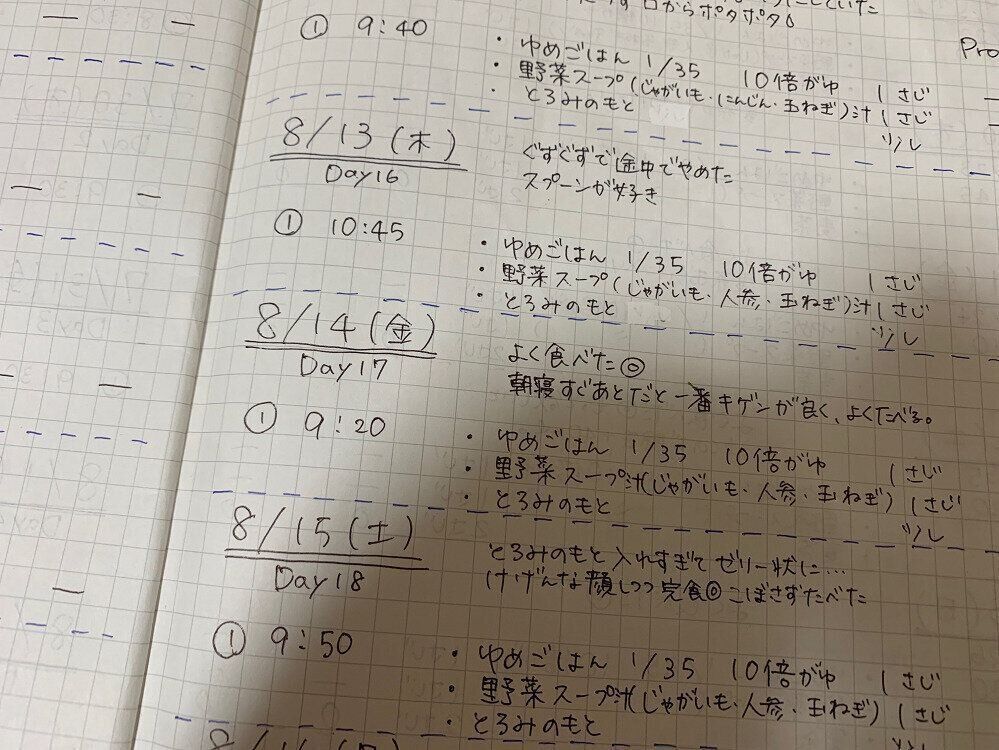 口からポタポタ
① 9:40
・ゆめごはん 1/35 10倍がゆ 1さじ
・野菜スープ(じゃがいも・にんじん・玉ねぎ)汁 1さじ
・とろみのもと 少し
8/13(木)
Day16
ぐずぐずで途中でやめた
スプーンが好き
① 10:45
・ゆめごはん 1/35 10倍がゆ 1さじ
・野菜スープ(じゃがいも・人参・玉ねぎ)汁 1さじ
・とろみのもと 少し
8/14(金)
Day17
よく食べた◎
朝寝すぐあとだと一番キゲンが良く、よくたべる。
① 9:20
・ゆめごはん 1/35 10倍がゆ 1さじ
・野菜スープ汁(じゃがいも・人参・玉ねぎ) 1さじ
・とろみのもと 少し
8/15(土)
Day18
とろみのもと入れすぎてゼリー状に…
けげんな顔しつつ完食◎こぼさずたべた
① 9:50
・ゆめごはん 1/35 10倍がゆ 1さじ
・野菜スープ汁(じゃがいも・人参・玉ねぎ) 1さじ
・とろみのもと